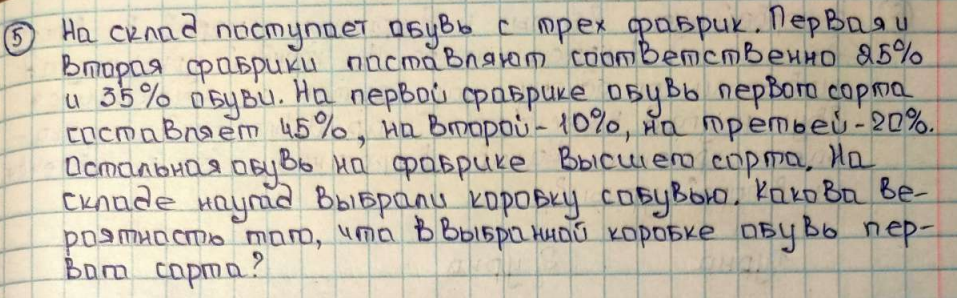 5 На склад поступает обувь с трех фабрик. Первая и
вторая фабрики поставляют соответственно 25%
и 35% обуви. На первой фабрике обувь первого сорта
составляет 45%, на второй - 10%, на третьей - 20%.
Остальная обувь на фабрике высшего сорта. На
складе наугад выбрали коробку с обувью. Какова ве-
роятность того, что в выбранной коробке обувь пер-
вого сорта?